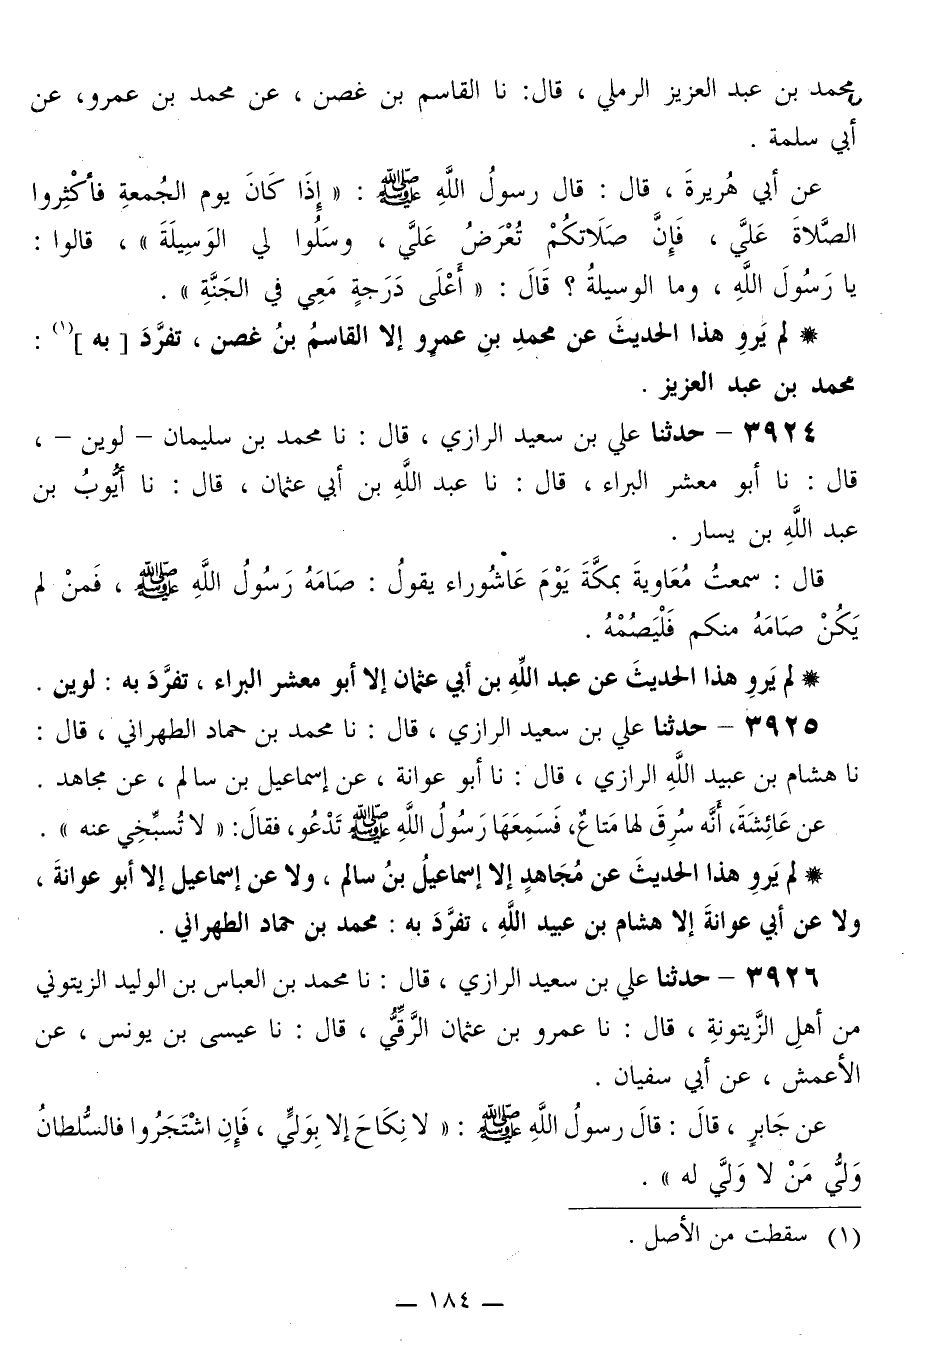 محمد بن عبد العزيز الرملي ، قال: نا القاسم بن غصن ، عن محمد بن عمرو، عن
أبي سلمة .
عن أبي هُريرةَ ، قال : قال رسولُ اللَّهِ ﷺ : « إِذَا كَانَ يوم الجُمعةِ فأكْثِروا
الصَّلاةَ عَليَّ ، فَإِنَّ صَلَاتكُمْ تُعْرَضُ عَليَّ ، وسَلُوا لي الوَسِيلَةَ » ، قالوا :
يا رَسُولَ اللَّهِ ، وما الوسيلةُ ؟ قَالَ : « أَعْلَى دَرَجةٍ مَعِي في الجَنَّةِ » .
* لم يَروِ هذا الحديثَ عن محمدِ بنِ عمرٍو إلا القاسمُ بنُ غصن ، تفرَّدَ [ به ](١) :
محمد بن عبد العزيز .
٣٩٢٤ – حدثنا علي بن سعيد الرازي ، قال : نا محمد بن سليمان – لوين – ،
قال : نا أبو معشر البراء ، قال : نا عبد اللَّهِ بن أبي عثمان ، قال : نا أيُّوبُ بن
عبد اللَّهِ بن يسار .
قال : سمعتُ مُعَاويةَ بمكَّةَ يَوْمَ عَاشُوراء يقولُ : صَامَهُ رَسُولُ اللَّهِ ﷺ ، فَمنْ لم
يَكُنْ صَامَهُ منكم فَلْيَصُمْهُ .
* لم يَروِ هذا الحديثَ عن عبد اللَّهِ بن أبي عثمان إلا أبو معشر البراء ، تفرَّدَ به : لوين .
٣٩٢٥ – حدثنا علي بن سعيد الرازي ، قال : نا محمد بن حماد الطهراني ، قال :
نا هشام بن عبيد اللَّهِ الرازي ، قال : نا أبو عوانة ، عن إسماعيل بن سالم ، عن مجاهد .
عن عَائِشَةَ، أَنَّه سُرِقَ لها مَتاعٌ، فَسَمِعَهَا رَسُولُ اللَّهِ ﷺ تَدْعُو، فقالَ: « لا تُسبِّخِي عنه » .
* لم يَروِ هذا الحديثَ عن مُجَاهدٍ إلا إسماعيلُ بنُ سالم ، ولا عن إسماعيل إلا أبو عوانةَ ،
ولا عن أبي عوانةَ إلا هشام بن عبيد اللَّهِ ، تفرَّدَ به : محمد بن حماد الطهراني .
٣٩٢٦ – حدثنا علي بن سعيد الرازي ، قال : نا محمد بن العباس بن الوليد الزيتوني
من أهلِ الزَّيتونةِ ، قال : نا عمرو بن عثمان الرَّقِّيُّ ، قال : نا عيسى بن يونس ، عن
الأعمش ، عن أبي سفيان .
عن جَابرٍ ، قالَ : قالَ رسولُ اللَّهِ ﷺ : « لا نِكَاحَ إلا بِوَليٍّ ، فَإِنِ اشْتَجَرُوا فالسُّلطانُ
وَليُّ مَنْ لا وَليَّ له » .
(١) سقطت من الأصل .
– ١٨٤ –